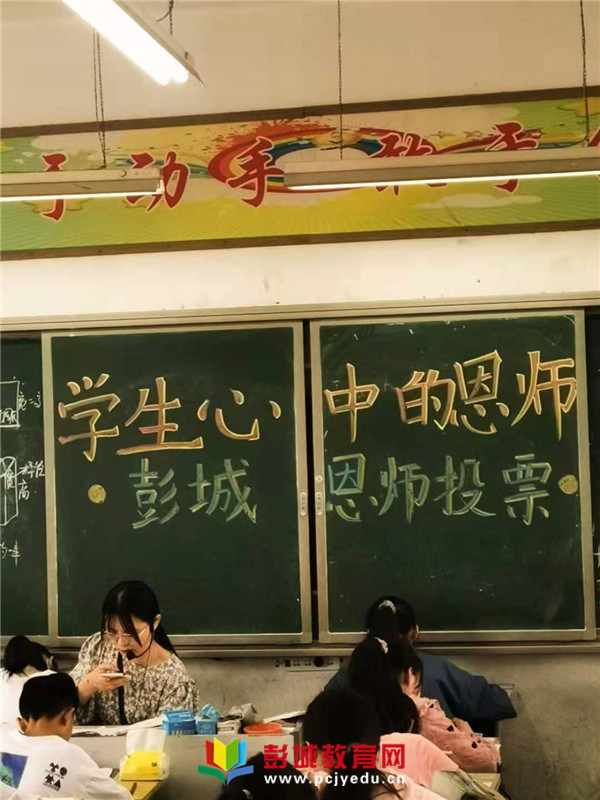 动手
学生心中的恩师
·彭城恩师投票·
彭城教育网
www.pcjyedu.cn